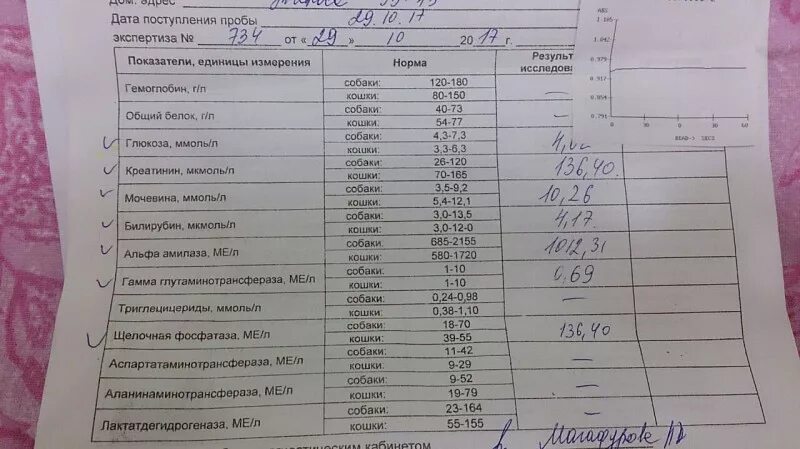 Дом. адрес
Дата поступления пробы 29.10.17
экспертиза № 734 от «29» 10 2017 г.
Показатели, единицы измерения Норма Результ исследова
Гемоглобин, г/л собаки: 120-180 —
кошки: 80-150
Общий белок, г/л собаки: 40-73 —
кошки: 54-77
Глюкоза, ммоль/л собаки: 4,3-7,3
кошки: 3,3-6,3
Креатинин, мкмоль/л собаки: 26-120 136,40
кошки: 70-165
Мочевина, ммоль/л собаки: 3,5-9,2 10,26
кошки: 5,4-12,1
Билирубин, мкмоль/л собаки: 3,0-13,5 4,17
кошки: 3,0-12,0
Альфа амилаза, МЕ/л собаки: 685-2155 1012,31
кошки: 580-1720
Гамма глутаминотрансфераза, МЕ/л собаки: 1-10 0,69
кошки: 1-10
Триглецициды, ммоль/л собаки: 0,24-0,98 —
кошки: 0,38-1,10
Щелочная фосфатаза, МЕ/л собаки: 18-70 136,40
кошки: 39-55
Аспартатаминотрансфераза, МЕ/л собаки: 11-42 —
кошки: 9-29
Аланинаминотрансфераза, МЕ/л собаки: 9-52 —
кошки: 19-79
Лактатдегидрогеназа, МЕ/л собаки: 23-164 —
кошки: 55-155
кабинетом
ABS
1.165
1.042
0.979
0.917
0.854
0.791
0 30 60
READ-> SECS